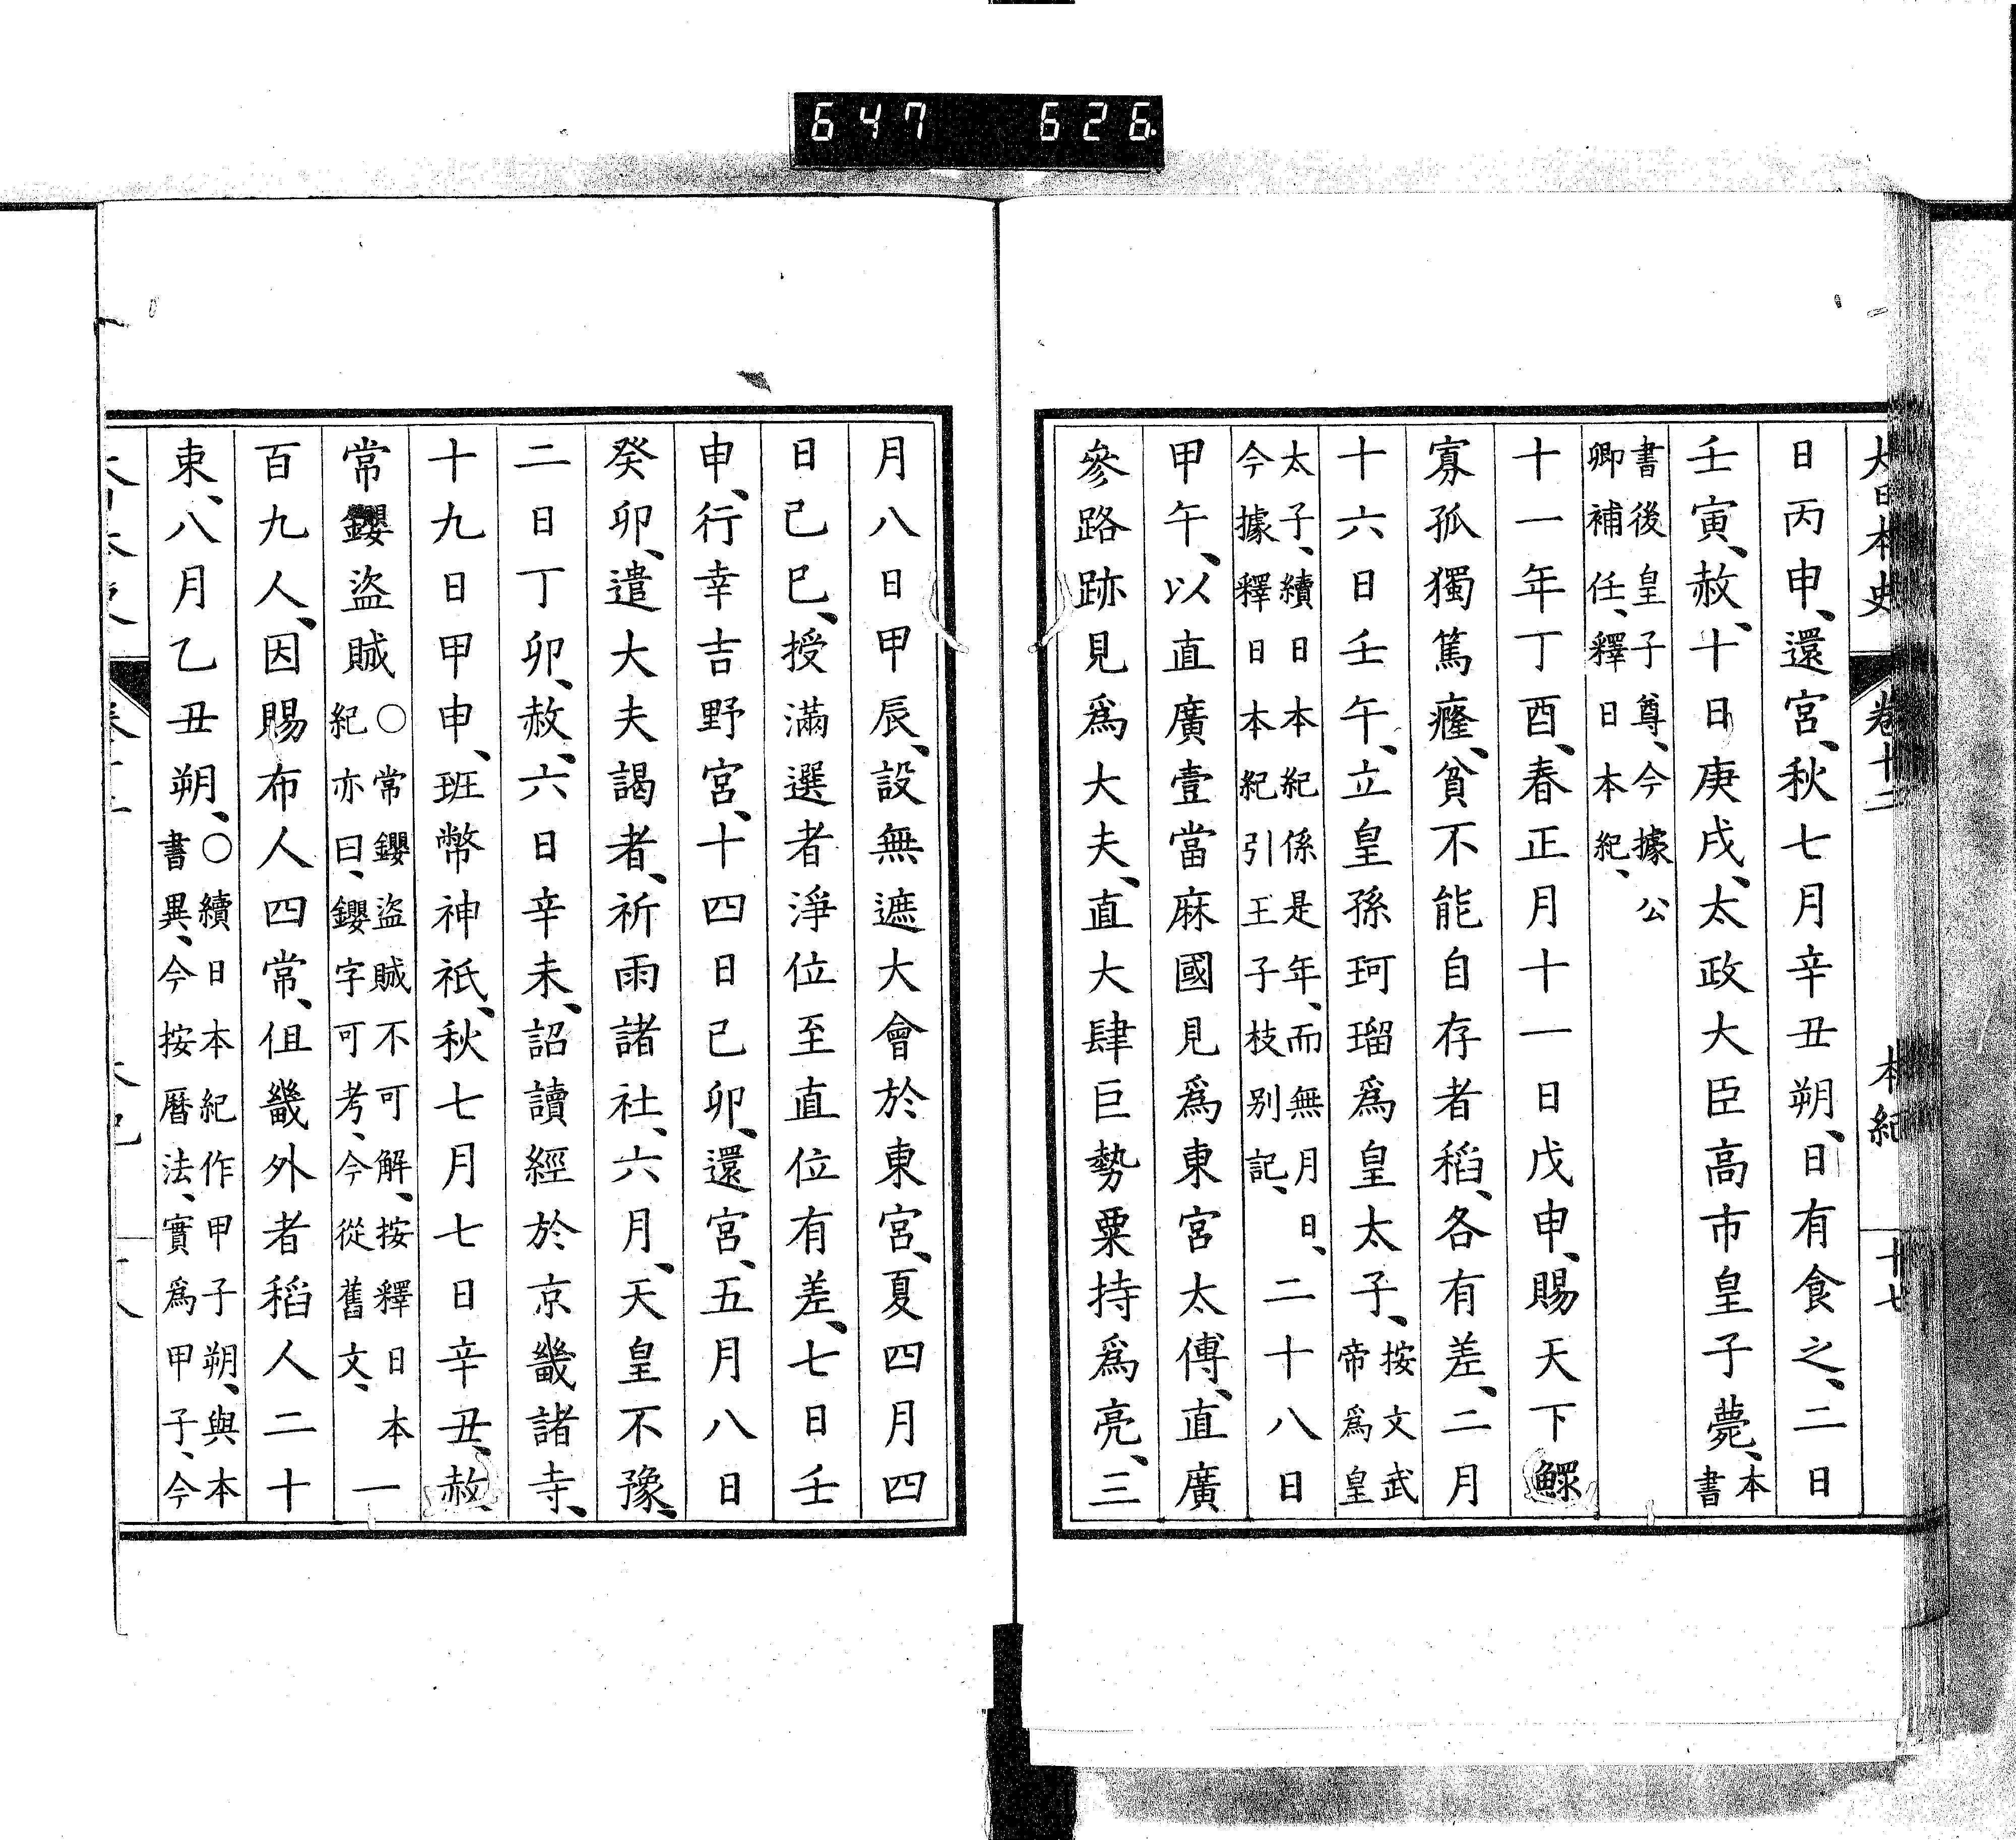 647 626
大日本史 卷十二 本紀 十七
日丙申、還宮、秋七月辛丑朔、日有食之、二日
壬寅、赦、十日庚戌、太政大臣高市皇子薨、本書
書後皇子尊、今據公
卿補任、釋日本紀、
十一年丁酉、春正月十一日戊申、賜天下鰥
寡孤獨篤癃、貧不能自存者稻、各有差、二月
十六日壬午、立皇孫珂瑠爲皇太子、按文武帝爲皇
太子、續日本紀係是年、而無月日、
今據釋日本紀引王子枝別記、二十八日
甲午、以直廣壹當麻國見爲東宮太傅、直廣
參路跡見爲大夫、直大肆巨勢粟持爲亮、三
月八日甲辰、設無遮大會於東宮、夏四月四
日己巳、授滿選者淨位至直位有差、七日壬
申、行幸吉野宮、十四日己卯、還宮、五月八日
癸卯、遣大夫謁者、祈雨諸社、六月、天皇不豫、
二日丁卯、赦、六日辛未、詔讀經於京畿諸寺、
十九日甲申、班幣神祇、秋七月七日辛丑、赦
常鑼盜賊○常鑼盜賊不可解、按釋日本
紀亦曰、鑼字可考、今從舊文、一
百九人、因賜布人四常、伹畿外者稻人二十
束、八月乙丑朔、○續日本紀作甲子朔、與本
書異、今按曆法、實爲甲子、今